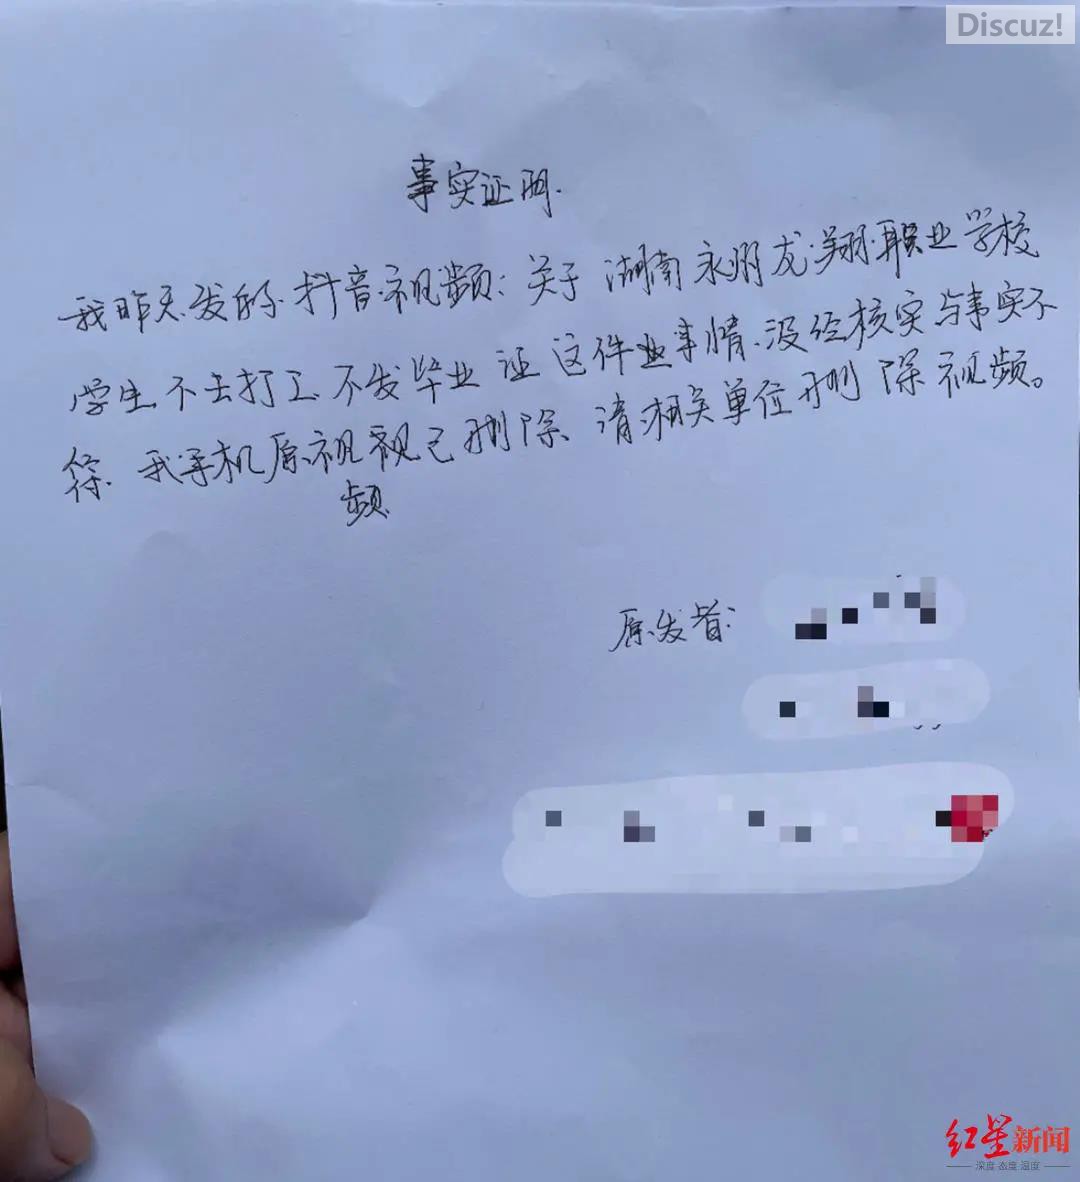 Discuz!
事实证明.
我昨天发的抖音视频:关于湖南永州龙翔职业学校
学生不去打工不发毕业证这件业事情、没经核实与事实不
符、我手机原视视已删除、请相关单位删除视频。
频
原发者:
红星新闻
深度 态度 温度